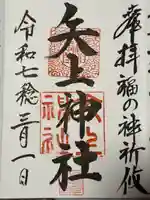 奉拝 福の神祈願
矢上神社
令和七稔三月一日